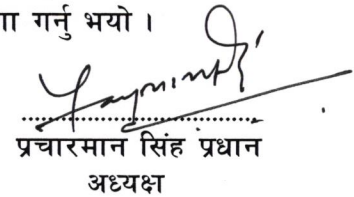 गर्नु भयो ।
प्रचारमान सिंह प्रधान
अध्यक्ष